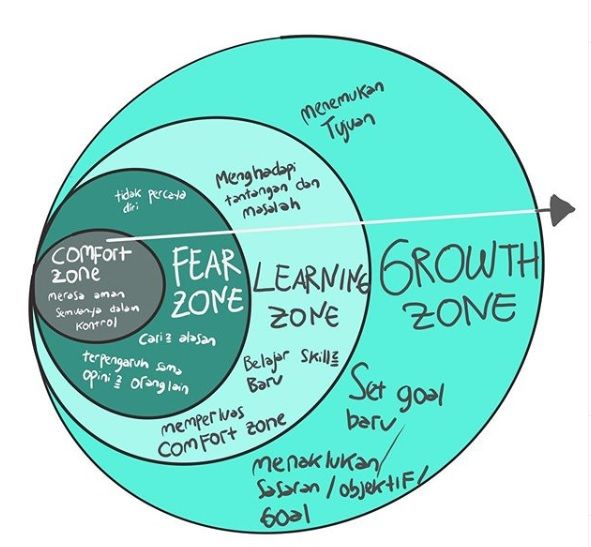 COMFORT
ZONE
merasa aman
Semuanya dalam
kontrol
FEAR
ZONE
tidak percaya
diri
Cari2 alasan
terpengaruh sama
opini2 orang lain
LEARNING
ZONE
Menghadapi
tantangan dan
masalah
Belajar skill2
Baru
memperluas
COMFORT ZONE
GROWTH
ZONE
menemukan
Tujuan
Set goal
baru
menaklukan/
Sasaran/objektif/
Goal